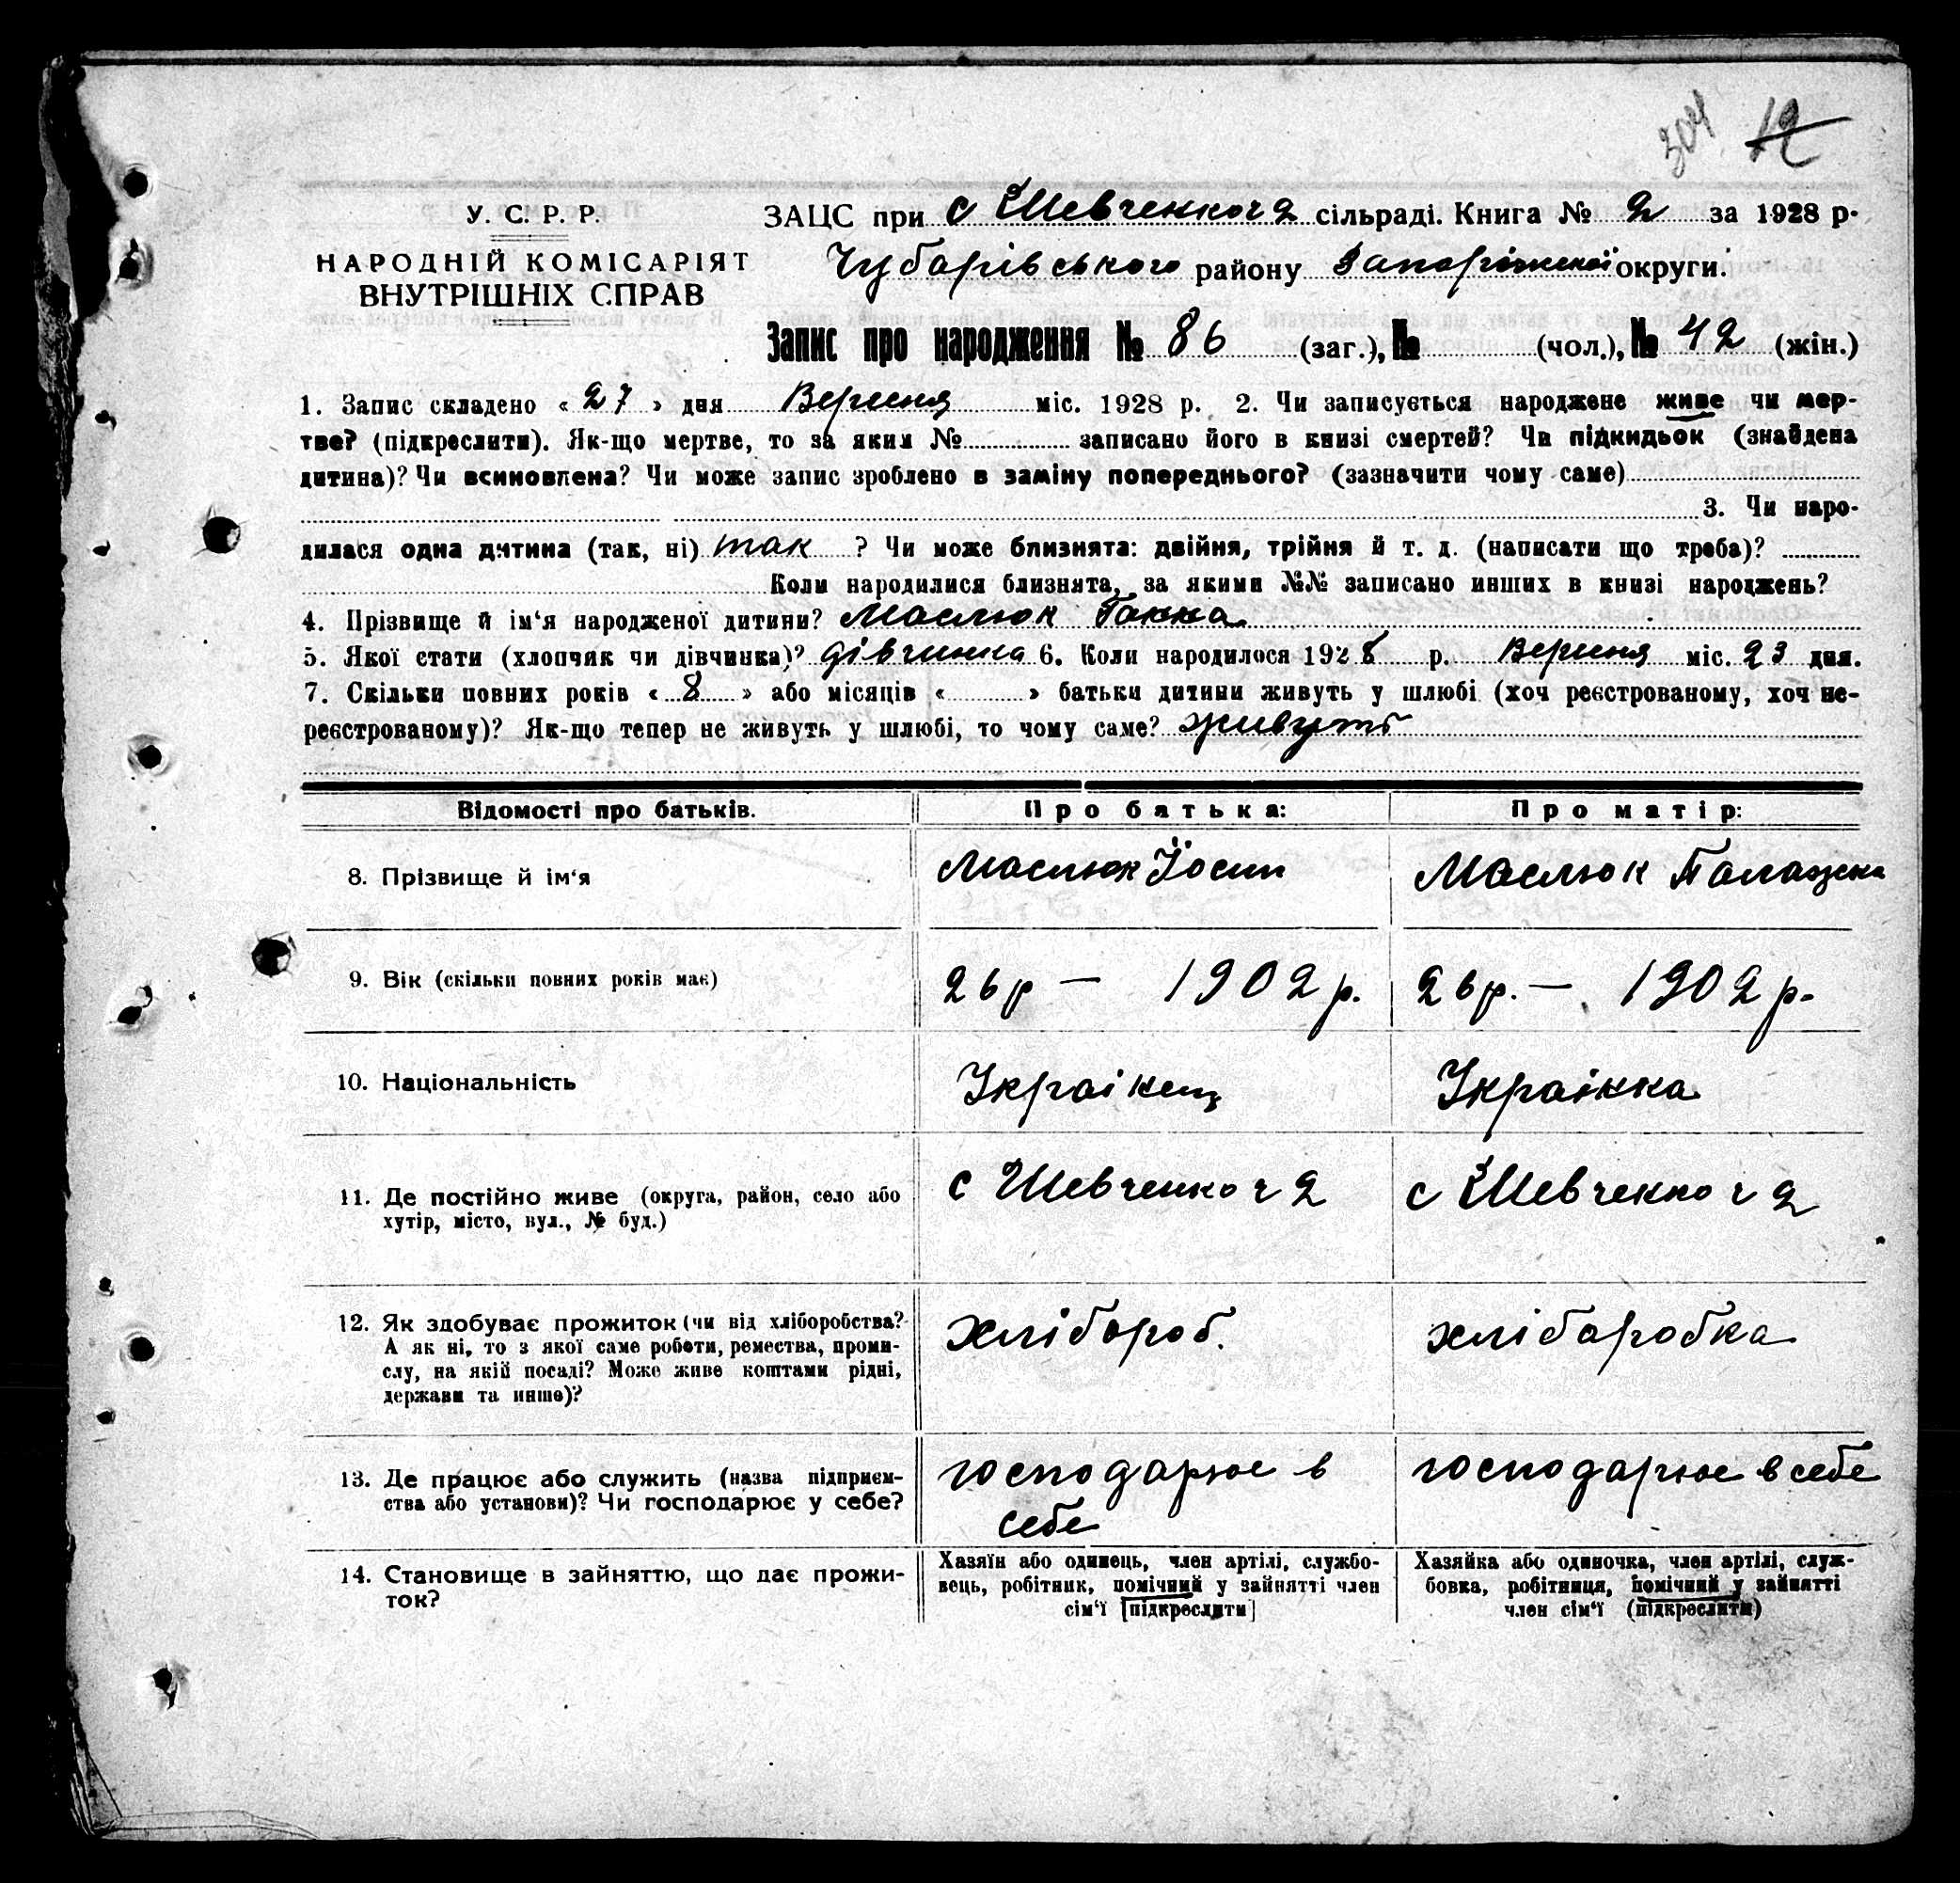 304 12
У. С. Р. Р.
НАРОДНІЙ КОМІСАРІЯТ
ВНУТРІШНІХ СПРАВ
ЗАЦС при с Шевченко ч 2 сільраді. Книга № 2 за 1928 р.
Чубарівського району Запоріжської округи.
Запис про народження № 86 (заг.), № (чол.), № 42 (жін.)
1. Запис складено « 27 » дня Вересня міс. 1928 р. 2. Чи записується народжене живе чи мер-
тве? (підкреслити). Як-що мертве, то за яким № записано його в книзі смертей? Чи підкидьок (знайдена
дитина)? Чи всиновлена? Чи може запис зроблено в заміну попереднього? (зазначити чому саме)
3. Чи наро-
дилася одна дитина (так, ні) так ? Чи може близнята: двійня, трійня й т. д. (написати що треба)?
Коли народилися близнята, за якими №№ записано инших в книзі народжень?
4. Прізвище й ім‘я народженої дитини? Маслюк Ганна
5. Якої стати (хлопчяк чи дівчинка)? дівчинка 6. Коли народилося 1928 р. Вересня міс. 23 дня.
7. Скільки повних років « 8 » або місяців « » батьки дитини живуть у шлюбі (хоч реєстрованому, хоч не-
реєстрованому)? Як-що тепер не живуть у шлюбі, то чому саме? живуть
Відомості про батьків. Про батька: Про матір:
8. Прізвище й ім‘я Маслюк Йосип Маслюк Палажка
9. Вік (скільки повних років має) 26 р — 1902 р. 26 р. — 1902 р.
10. Національність Украінец Украінка
11. Де постійно живе (округа, район, село або с Шевченко ч 2 с Шевченко ч 2
хутір, місто, вул., № буд.)
12. Як здобуває прожиток (чи від хліборобства? хлібороб. хліборобка
А як ні, то з якої саме роботи, ремества, проми-
слу, на якій посаді? Може живе коштами рідні,
держави та инше)?
13. Де працює або служить (назва підприєм- господарює в господарює в себе
ства або установи)? Чи господарює у себе? себе
14. Становище в зайняттю, що дає прожи-
ток?
Хазяїн або одинець, член артілі, службо-
вець, робітник, помічний у зайнятті член
сім‘ї [підкреслити]
Хазяйка або одиночка, член артілі, служ-
бовка, робітниця, помічний у зайнятті
член сім‘ї (підкреслити)